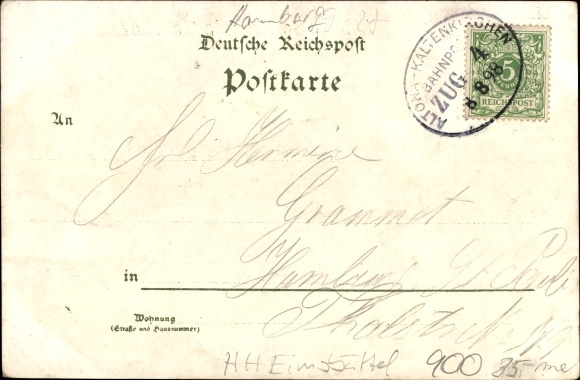 Hamburg
Deutsche Reichspost
Postkarte
ALTONA-KALTENKIRCHEN
BAHNPOST
ZUG 4
8 8 98
5
REICHSPOST
An
Frl. Hermine
Grammet
in Hamburg St. Pauli
Thalstr.
Wohnung
(Straße und Hausnummer)
HH Eimsbüttel 900 35,- me